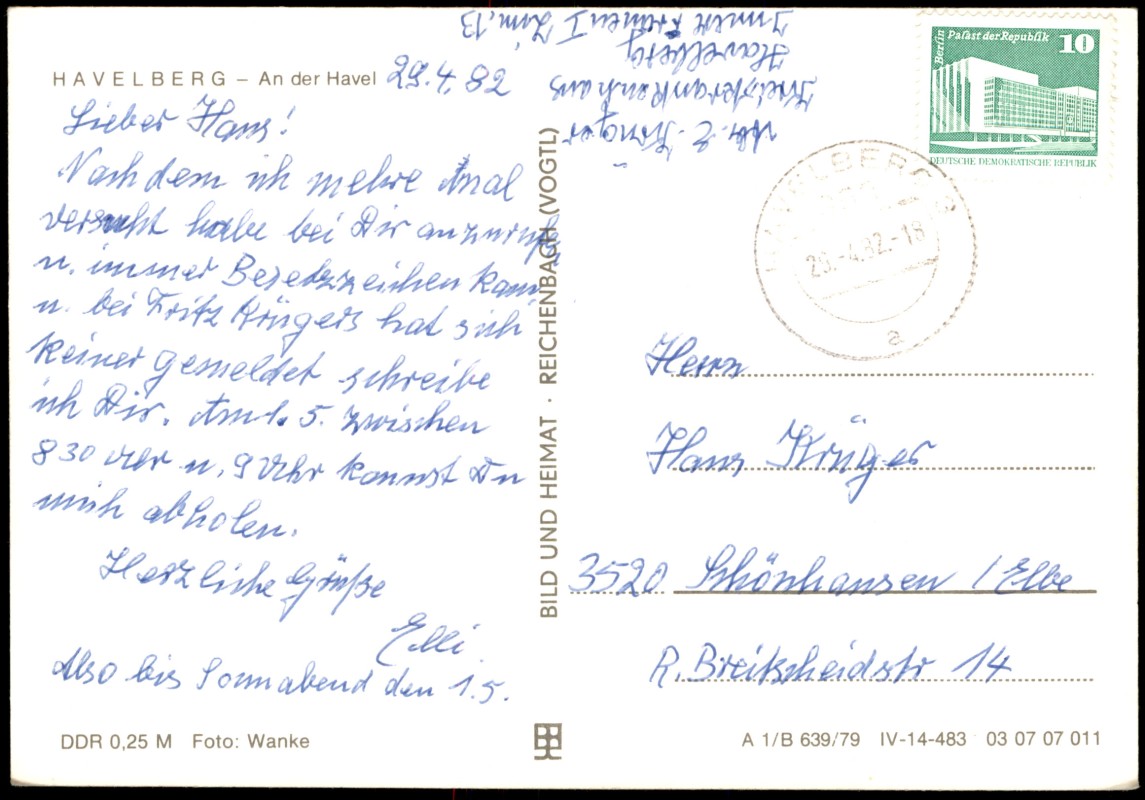 HAVELBERG – An der Havel 29.4.82
Lieber Hans!
Nachdem ich mehre mal
versucht habe bei Dir anzurufen
u. immer Besetzzeichen kam
u. bei Fritz Krügers hat sich
keiner gemeldet schreibe
ich Dir. Am 1. 5. zwischen
830 Uhr u. 9 Uhr kannst Du
mich abholen.
Herzliche Grüße
Elli.
Also bis Sonnabend den 1.5.
DDR 0,25 M Foto: Wanke
BILD UND HEIMAT · REICHENBACH (VOGTL)
Abs. E. Krüger
Kreiskrankenhaus
Havelberg
Innere Frauen I Zim. 13
Berlin Palast der Republik 10
DEUTSCHE DEMOKRATISCHE REPUBLIK
HAVELBERG
29.-4.82.-18
a
Herrn
Hans Krüger
3520 Schönhausen / Elbe
R. Breitscheidstr 14
A 1/B 639/79 IV-14-483 03 07 07 011